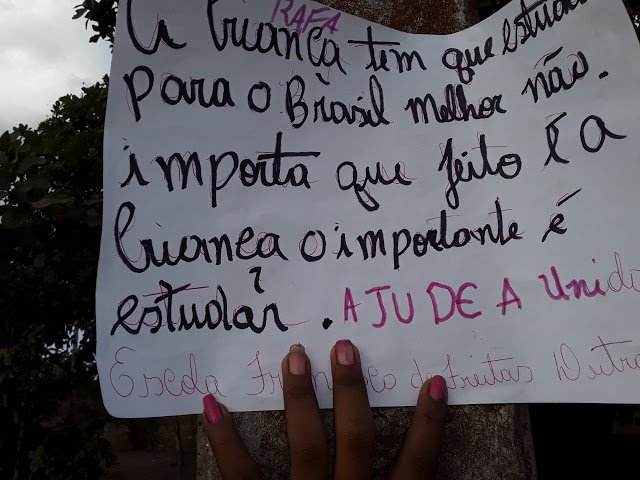 RAFA
A Criança tem que estuda
para o Brasil melhor não.
importa que jeito é a
Criança o importante é
estudar. AJUDE A Unido
Escola de Freitas Dutra